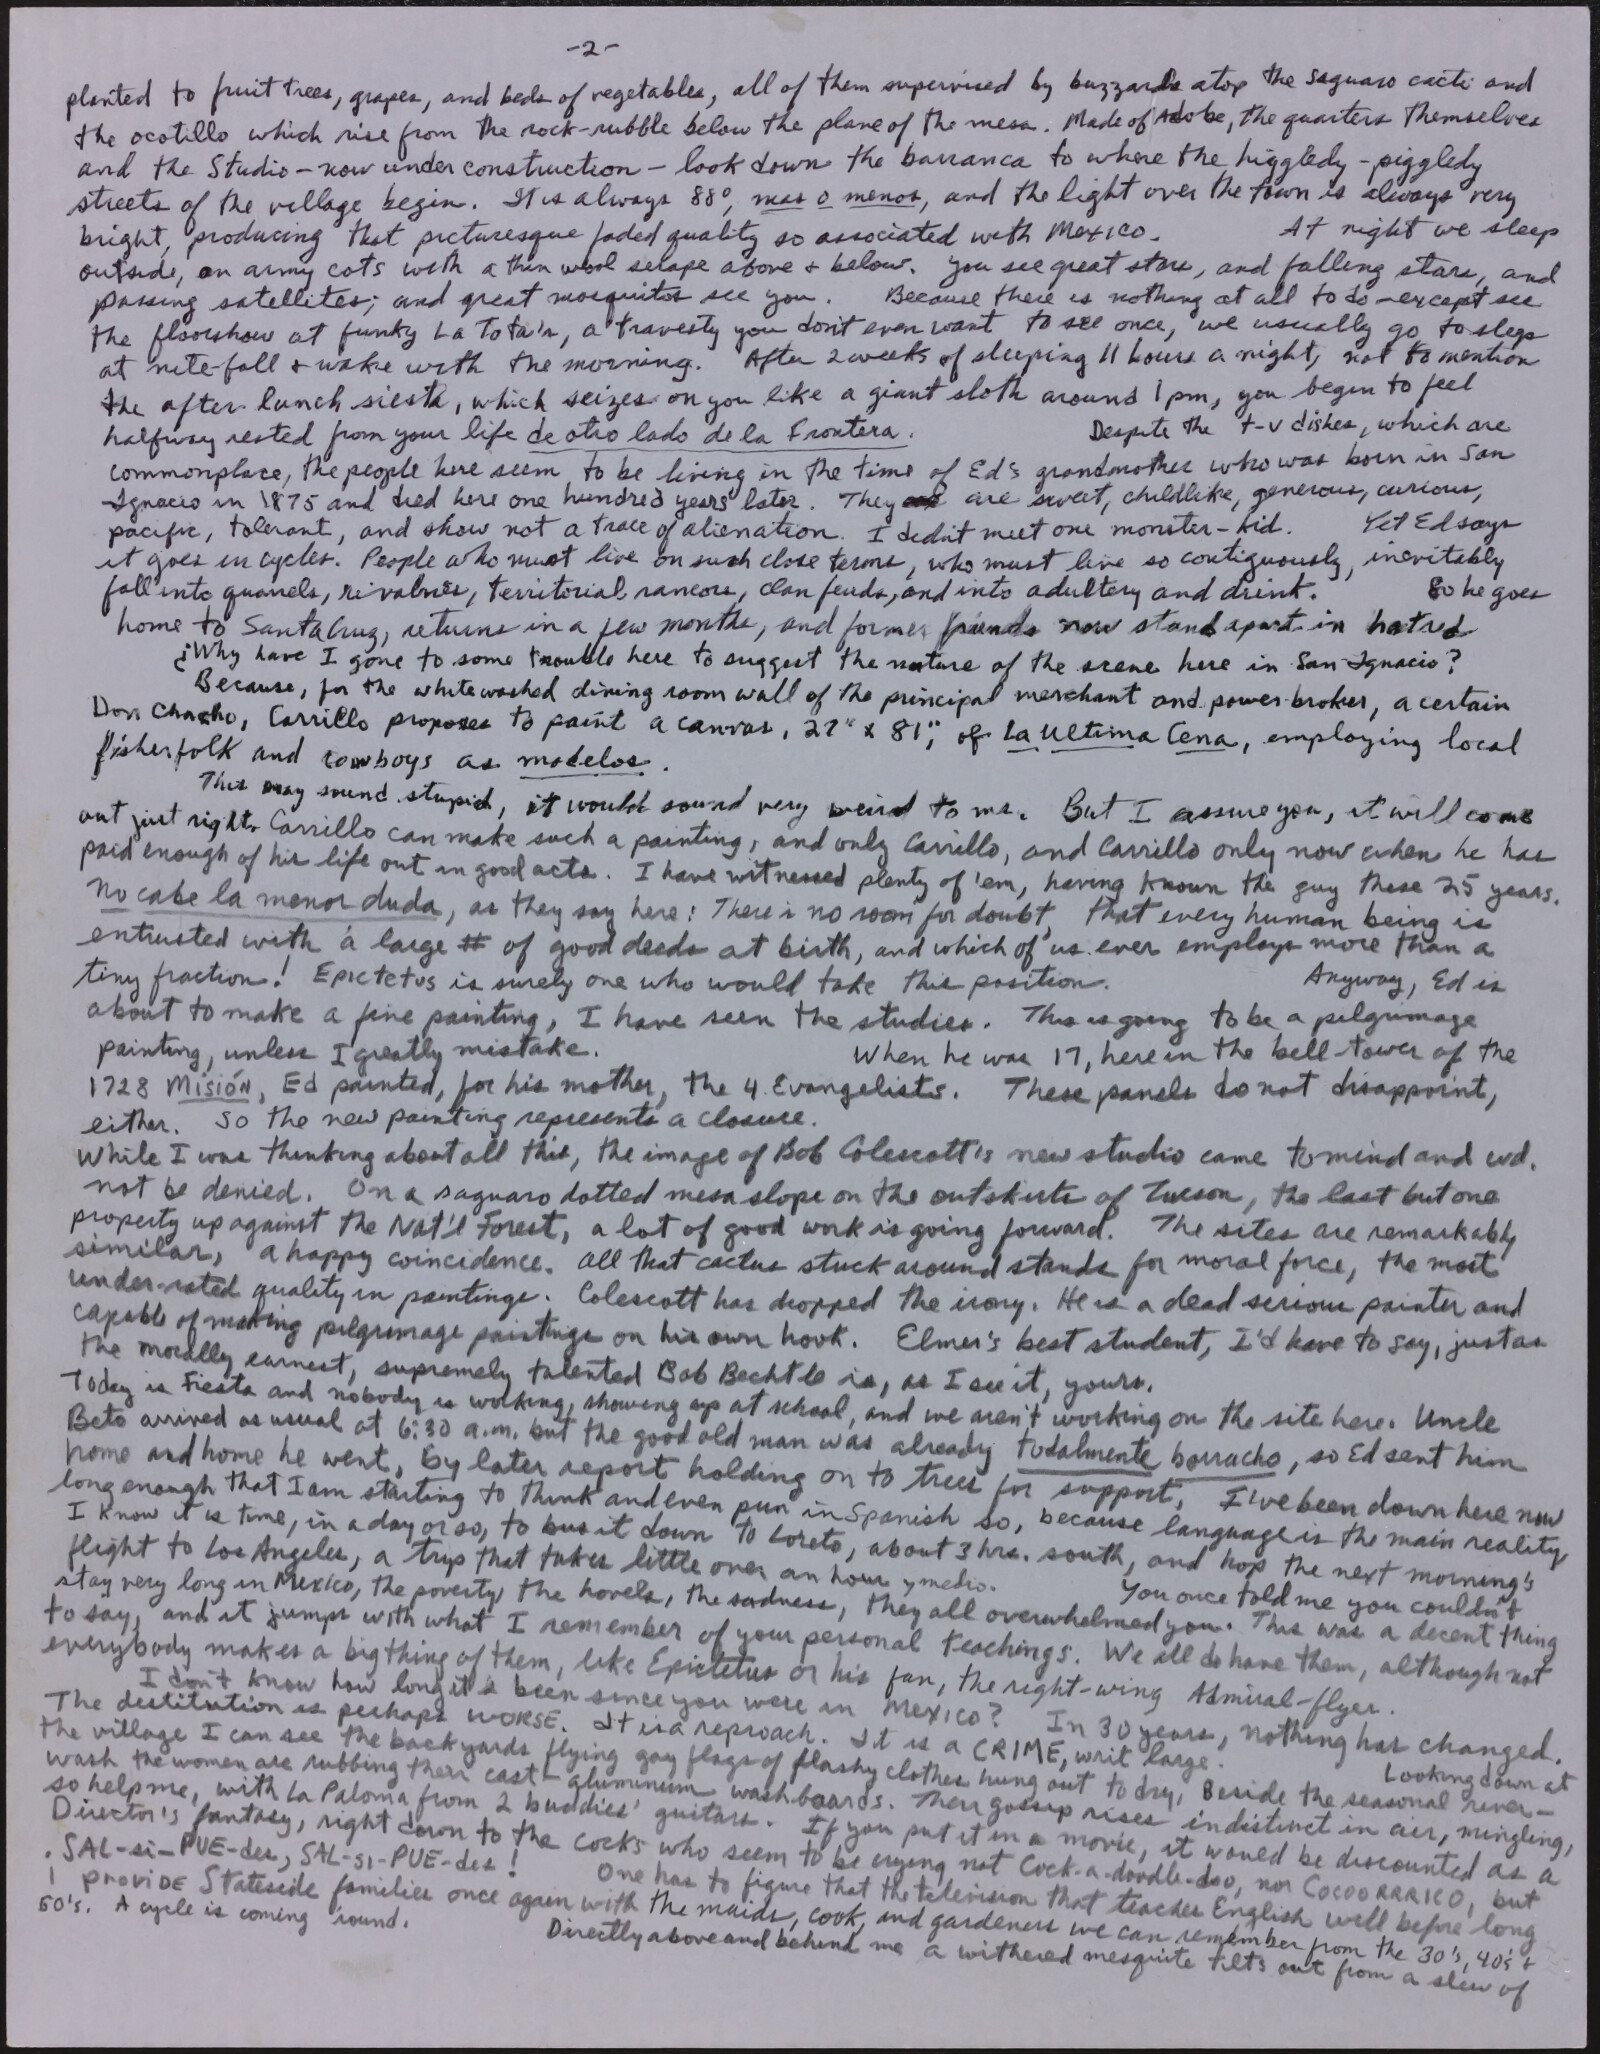 -2-
planted to fruit trees, grapes, and beds of vegetables, all of them supervised by buzzards atop the saguaro cacti and
the ocotillo which rise from the rock-rubble below the plane of the mesa. Made of Adobe, the quarters themselves
and the Studio - now under construction - look down the barranca to where the higgledy-piggledy
streets of the village begin. It is always 88°, mas o menos, and the light over the town is always very
bright, producing that picturesque faded quality so associated with Mexico. At night we sleep
outside, on army cots with a thin wool serape above & below. You see great stars, and falling stars, and
passing satellites; and great mosquitos see you. Because there is nothing at all to do - except see
the floorshow at funky La Tota's, a travesty you don't even want to see once, we usually go to sleep
at nite-fall & wake with the morning. After 2 weeks of sleeping 11 hours a night, not to mention
the after lunch siesta, which seizes on you like a giant sloth around 1 pm, you begin to feel
halfway rested from your life de otro lado de la Frontera. Despite the t-v dishes, which are
commonplace, the people here seem to be living in the time of Ed's grandmother who was born in San
Ignacio in 1875 and died here one hundred years later. They are sweet, childlike, generous, curious,
pacific, tolerant, and show not a trace of alienation. I didn't meet one monster-kid. Yet Ed says
it goes in cycles. People who must live on such close terms, who must live so contiguously, inevitably
fall into quarrels, rivalries, territorial rancors, clan feuds, and into adultery and drink. So he goes
home to Santa Cruz, returns in a few months, and former friends now stand apart in hatred
¿Why have I gone to some trouble here to suggest the nature of the scene here in San Ignacio?
Because, for the whitewashed dining room wall of the principal merchant and power-broker, a certain
Don Chacho, Carrillo proposes to paint a canvas, 27" x 81", of La Ultima Cena, employing local
fisherfolk and cowboys as modelos.
This may sound stupid, it would sound very weird to me. But I assure you, it will come
out just right. Carrillo can make such a painting, and only Carrillo, and Carrillo only now when he has
paid enough of his life out in good acts. I have witnessed plenty of 'em, having known the guy these 25 years.
No cabe la menor duda, as they say here: There is no room for doubt, that every human being is
entrusted with a large # of good deeds at birth, and which of us ever employs more than a
tiny fraction! Epictetus is surely one who would take this position. Anyway, Ed is
about to make a fine painting, I have seen the studies. This is going to be a pilgrimage
painting, unless I greatly mistake. When he was 17, here in the bell-tower of the
1728 Misión, Ed painted, for his mother, the 4 Evangelists. These panels do not disappoint,
either. So the new painting represents a closure.
While I was thinking about all this, the image of Bob Colescott's new studio came to mind and wd.
not be denied. On a saguaro dotted mesa slope on the outskirts of Tucson, the last but one
property up against the Nat'l Forest, a lot of good work is going forward. The sites are remarkably
similar, a happy coincidence. All that cactus stuck around stands for moral force, the most
under-rated quality in paintings. Colescott has dropped the irony. He is a dead serious painter and
capable of making pilgrimage paintings on his own hook. Elmer's best student, I'd have to say, just as
the morally earnest, supremely talented Bob Bechtle is, as I see it, yours.
Today is Fiesta and nobody is working, showing up at school, and we aren't working on the site here. Uncle
Beto arrived as usual at 6:30 a.m. but the good old man was already todalmente borracho, so Ed sent him
home and home he went, by later report holding on to trees for support. I've been down here now
long enough that I am starting to think and even pun in Spanish so, because language is the main reality,
I know it is time, in a day or so, to bus it down to Loreto, about 3 hrs. south, and hop the next morning's
flight to Los Angeles, a trip that takes little over an hour y medio. You once told me you couldn't
stay very long in Mexico, the poverty, the hovels, the sadness, they all overwhelmed you. This was a decent thing
to say, and it jumps with what I remember of your personal teachings. We all do have them, although not
everybody makes a big thing of them, like Epictetus or his fan, the right-wing Admiral-flyer.
I don't know how long it's been since you were in Mexico? In 30 years, nothing has changed.
The destitution is perhaps WORSE. It is a reproach. It is a CRIME, writ large. Looking down at
the village I can see the backyards flying gay flags of flashy clothes hung out to dry, Beside the seasonal river-
wash the women are rubbing their cast-aluminum washboards. Their gossip rises indistinct in air, mingling,
so help me, with La Paloma from 2 buddies' guitars. If you put it in a movie, it would be discounted as a
Director's fantasy, right down to the cocks who seem to be crying not Cock-a-doodle-doo, nor COCOORRRICO, but
SAL-si-PUE-des, SAL-si-PUE-des! One has to figure that the television that teaches English will before long
provide Stateside families once again with the maids, cook, and gardeners we can remember from the 30's, 40's &
50's. A cycle is coming 'round. Directly above and behind me a withered mesquite tilts out from a slew of